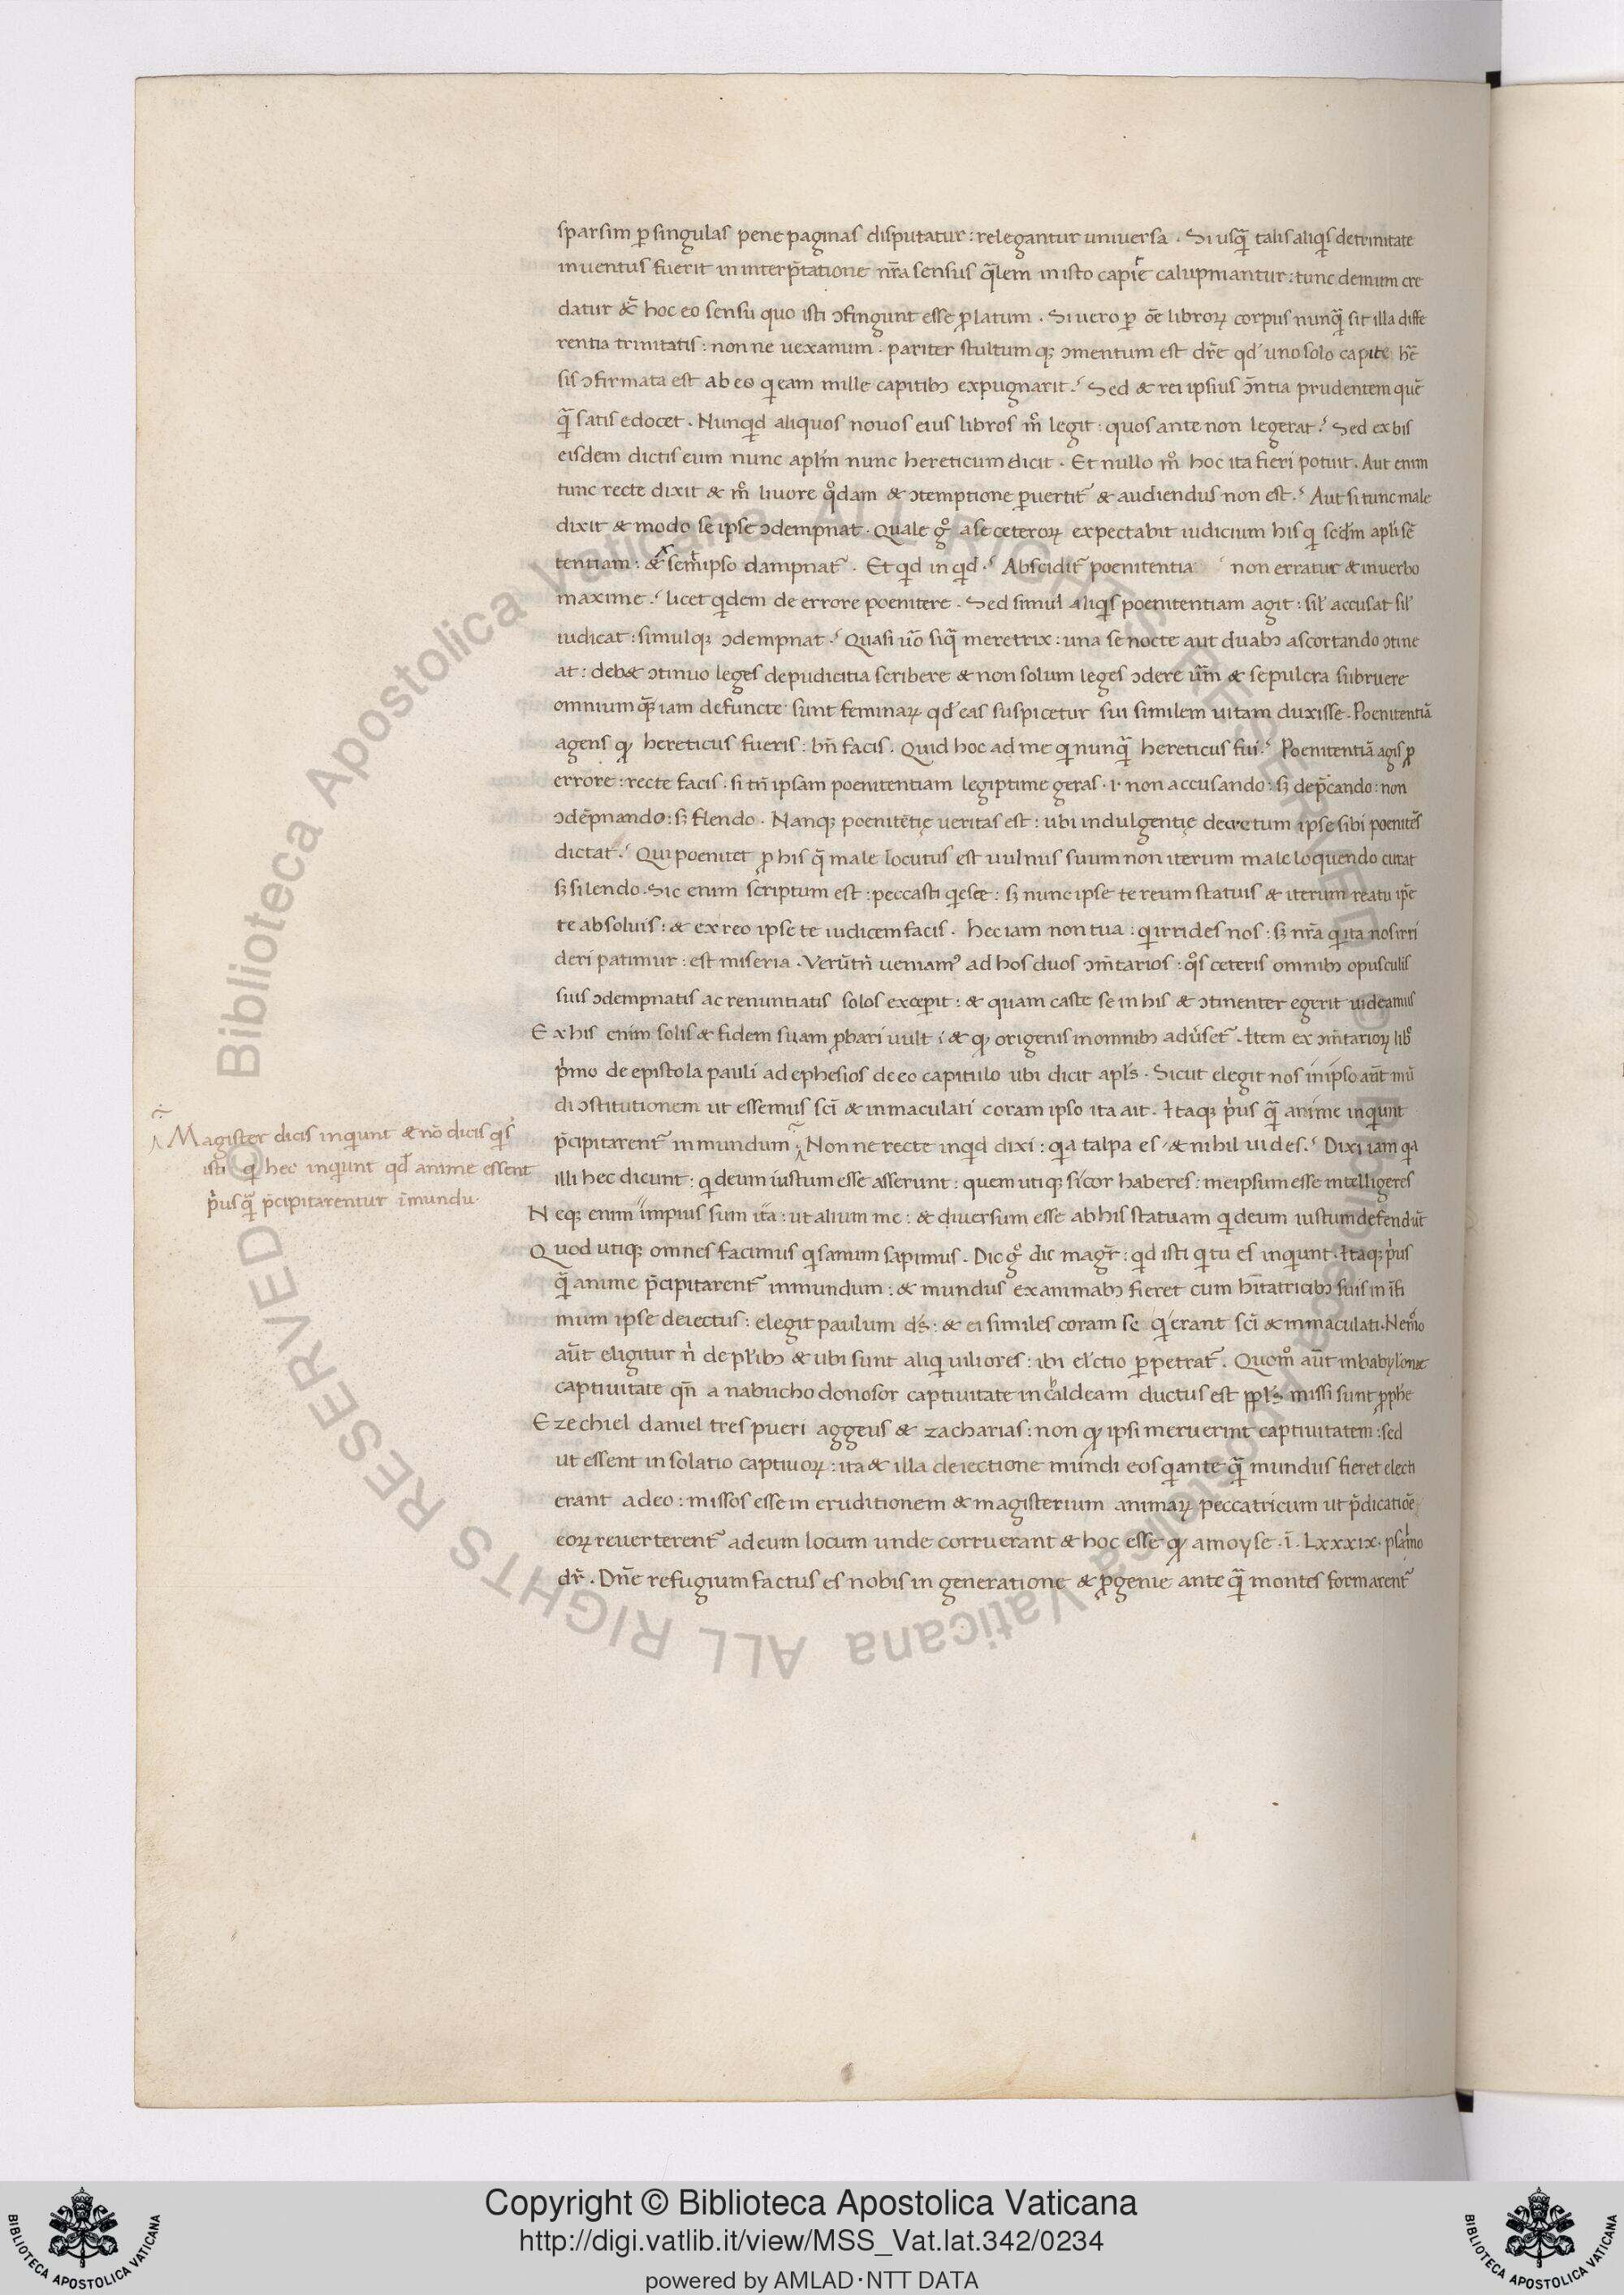 sparsim ꝑ singulas pene paginas disputatur : relegantur universa . Si usq̄ talis aliqis de trinitate
inventus fuerit in interp̄tatione nr̄a sensus q̄lem in isto capit̄e calupmantur : tunc demum cre
datur & hoc eo sensu quo isti ↄfingunt esse ꝓlatum . Si vero ꝑ oē libroꝝ corpus nunq̄ sit illa diffe
rentia trinitatis : non ne vexanum . pariter stultumqꝫ ↄmentum est dr̄e qd' uno solo capite hē
sis ↄfirmata est ab eo q eam mille capitibꝫ expugnarit ? Sed & rei ipsius ↄn̄tia prudentem quē
q̄ satis edocet . Nunqd aliquos novos eius libros m̊ legit : quos ante non legerat ? Sed ex his
eisdem dictis eum nunc aplīm nunc hereticum dicit . Et nullo m̊ hoc ita fieri potuit . Aut enim
tunc recte dixit & m̊ livore q̊dam & ↄtemptione ꝑvertit̄ & audiendus non est ? Aut si tunc male
dixit & modo se ipse ↄdempnat . Quale g̊ a se ceteroꝝ expectabit iudicium his q scd̄m apli sē
tentiam : & sem̄ipso dampnat̄ . Et qd inqd ? Abscidit̄ poenitentia non erratur & in verbo
maxime ? licet qdem de errore poenitere . Sed simul aliqis poenitentiam agit : sil' accusat sil'
iudicat : simulqꝫ ↄdempnat ? Quasi u̅o siq̄ meretrix : una se nocte aut duabꝫ a scortando ↄtine
at : deb& ↄtinuo leges de pudicitia scribere & non solum leges ↄdere u̅m & sepulcra subruere
omnium q̄ iam defuncte sunt feminaꝝ qd' eas suspicetur sui similem vitam duxisse . Poenitentiā
agens qꝫ hereticus fueris : bn̄ facis . Quid hoc ad me q nunq̄ hereticus fui ? Poenitentiā agis ꝓ
errore : recte facis . si tn̄ ipsam poenitentiam legiptime geras . i . non accusando : sꝫ dep̄cando : non
ↄdēpnando : sꝫ flendo . Nanqꝫ poenitētię veritas est : ubi indulgentię decretum ipse sibi poenitēs
dictat ? Qui poenitet ꝓ his q̄ male locutus est vulnus suum non iterum male loquendo curat
sꝫ silendo . Sic enim scriptum est : peccasti qesce : sꝫ nunc ipse te reum statuis & iterum reatu ip̄e
te absolvis : & ex reo ipse te iudicem facis . hec iam non tua : q irrides nos : sꝫ nr̄a q ita nos irri
deri patimur : est miseria . Verūtn̄ veniamꝰ ad hos duos ↄm̄tarios : q̊s ceteris omnibꝫ opusculis
suis ↄdempnatis ac renuntiatis solos excepit : & quam caste se in his & ↄtinenter egerit videamus
Ex his enim solis & fidem suam ꝓbari vult & qꝫ origenis in omnibꝫ adv̄set̄ . Item ex ↄm̄tarioꝝ lib̊
p̍mo de epistola pauli ad ephesios de eo capitulo ubi dicit apl's . Sicut elegit nos in ipso an̄t mū
di ↄstitutionem ut essemus sc̄i & inmaculati coram ipso ita ait . Itaqꝫ p̍us q̄ anime inqunt
p̄cipitarent̄ in mundum . Non ne recte inqd dixi : qa talpa es & nihil vides ? Dixi iam qa
Magister dicis inqunt & nō dicis qs
isti q hec inqunt qd' anime essent
p̍usq̄ p̄cipitarentur ī mundu .
illi hec dicunt : q deum iustum esse asserunt : quem utiqꝫ si cor haberes : me ipsum esse intelligeres
Neqꝫ enim impius sum ita : ut alium me : & diversum esse ab his statuam q deum iustum defendūt
Quod utiqꝫ omnes facimus q sanum sapimus . Dic g̊ dic magr̄ : qd isti q tu es inqunt . Itaqꝫ p̍us
q̄ anime p̄cipitarent̄ in mundum : & mundus ex animabꝫ fieret cum hīt̄atricibꝫ suis in ifi
mum ipse deiectus : elegit paulum ds̄ : & ei similes coram se q erant sc̄i & inmaculati . Nemo
aūt eligitur n̍ de pl'ibꝫ & ubi sunt aliqi viliores : ibi el'ctio ꝑpetrat̄ . Quom̊ aūt in babylonie
captivitate qn̄ a nabuchodonosor captivitate in caldeam ductus est ppl's missi sunt ꝓphe
Ezechiel daniel tres pueri aggeus & zacharias : non qꝫ ipsi meruerint captivitatem : sed
ut essent in solatio captivoꝝ : ita & illa deiectione mundi eos q ante q̄ mundus fieret electi
erant a deo : missos esse in eruditionem & magisterium animaꝝ peccatricum ut p̄dicatiōe
eoꝝ reverterent̄ ad eum locum unde corruerant & hoc esse qꝫ a moyse . ī . Lxxxix . psalmo
dr̄ . Dn̄e refugium factus es nobis in generatione & ꝓgenie ante q̄ montes formarent̄
Copyright © Biblioteca Apostolica Vaticana
http://digi.vatlib.it/view/MSS_Vat.lat.342/0234
powered by AMLAD·NTT DATA
BIBLIOTECA APOSTOLICA VATICANA
BIBLIOTECA APOSTOLICA VATICANA
© Biblioteca Apostolica Vaticana ALL RIGHTS RESERVED
© Biblioteca Apostolica Vaticana ALL RIGHTS RESERVED